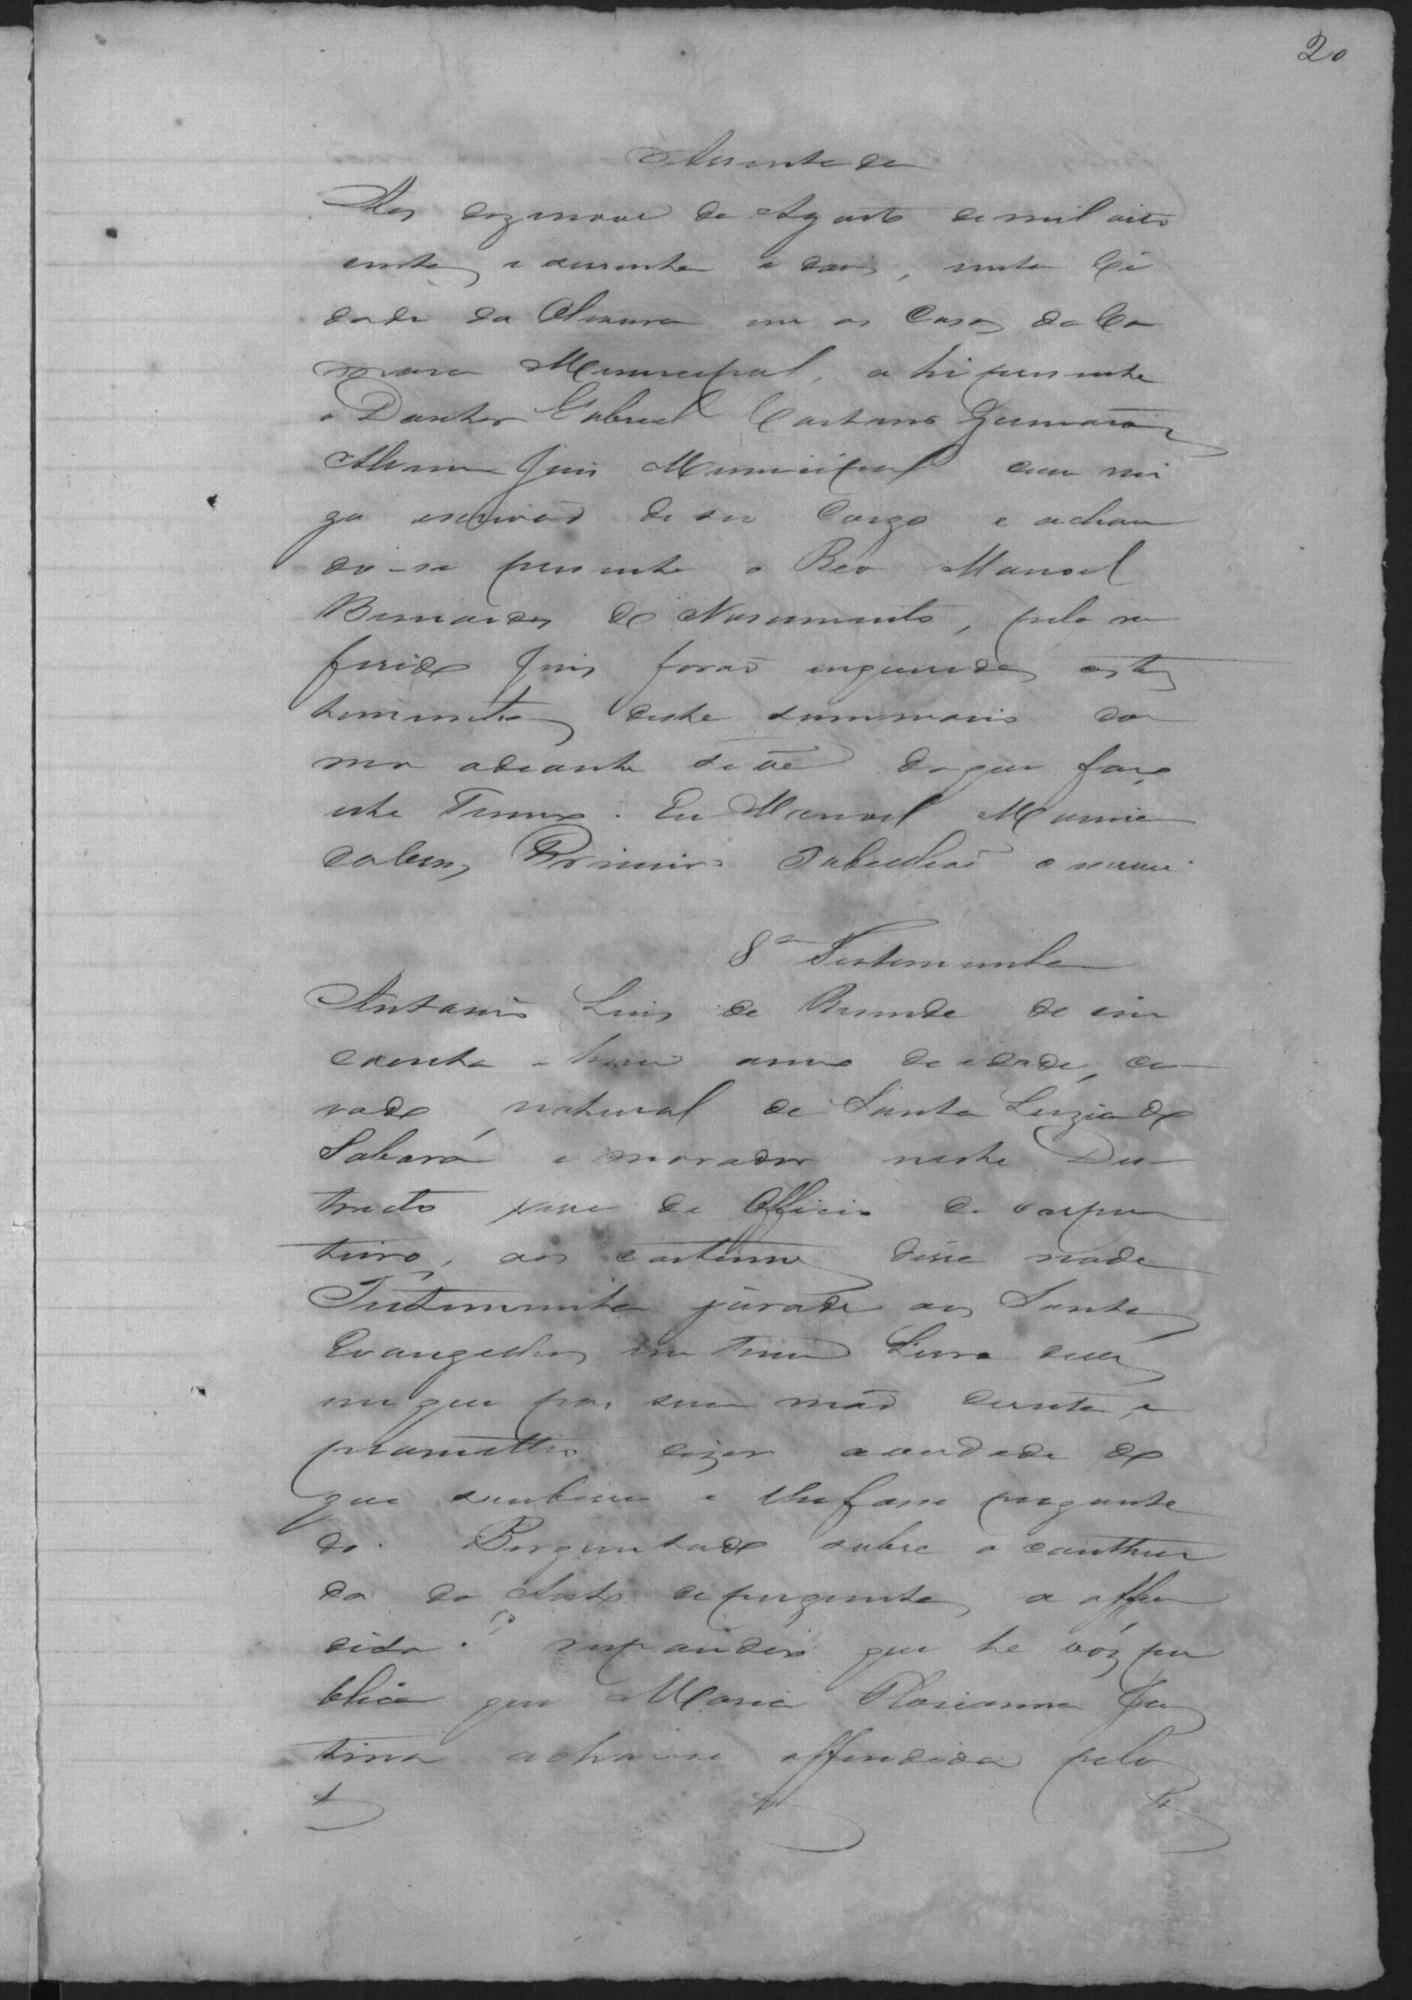 20
Assentada
Aos dezenove de Agosto de mil oito
centos e secenta e dous, nesta Ci
dade da Oliveira em as Casas da Ca
mara Municipal, ahi presente
o Doutor Gabriel Caetano Guimarães
Juis Municipal com mi
go escrivaõ de seu Cargo e achan
do-se presente o Reo Manoel
Bernardes do Nascimento, pelo re
ferido Juis foraõ inqueridas as tes
temunhas deste summario co
mo adeante se vê do que faço
este Termo. Eu Manoel
Primeiro Tabelliaõ o escrevi.
8ª Testemunha
Antonio Luis de de cin
coenta e hum annos de idade, ca
zado, natural de Santa Luzia do
Sabará e morador neste Des
tricto vive de Officio de carpin
teiro, aos costumes disse nada
Testemunha jurada aos Santos
Evangelhos em hum Livro delles
em que pos sua maõ direita, e
prometteo dizer a verdade do
que soubesse e lhe fosse pregunta
do. Perguntado sobre o contheu
do do Auto de perguntas a offen
dida? respondeo que he vóz pu
blica que Maria Florianna Jus
tina achavase offendida pelo